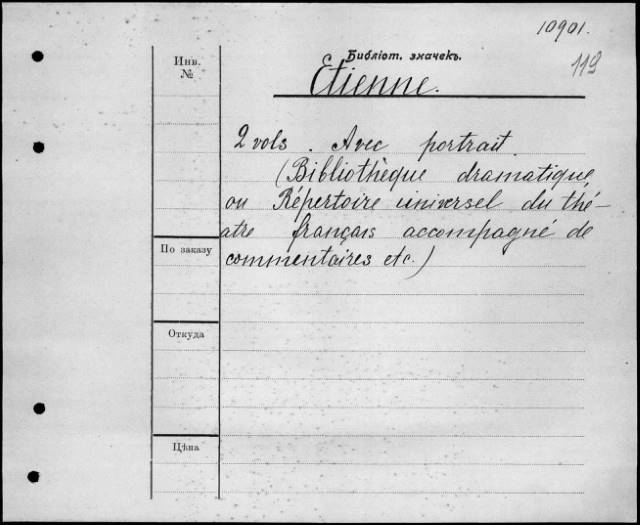 10901.
Библіот. значекъ.
113
Инв.
№
Etienne.
2 vols. Avec portrait.
(Bibliothèque dramatique
ou Répertoire universel du thé-
atre français accompagné de
commentaires etc.)
По заказу
Откуда
Цѣна